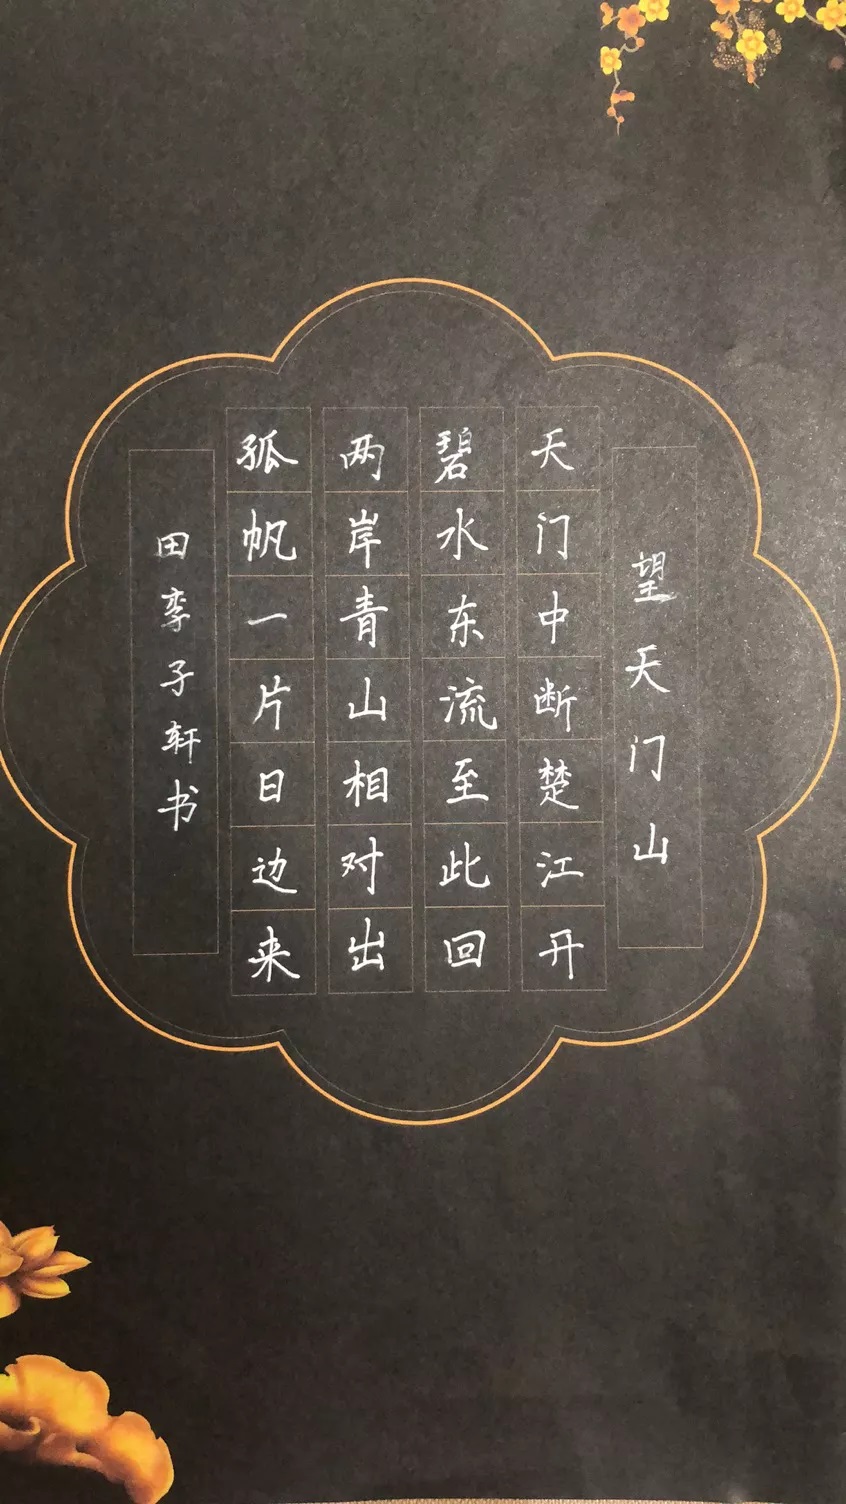 望天门山
天门中断楚江开
碧水东流至此回
两岸青山相对出
孤帆一片日边来
田李子轩书